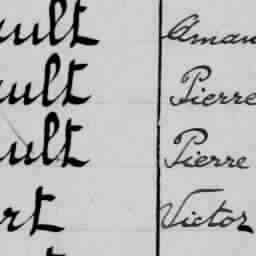 ault Aman
ault Pierre
ault Pierre
rt Victor